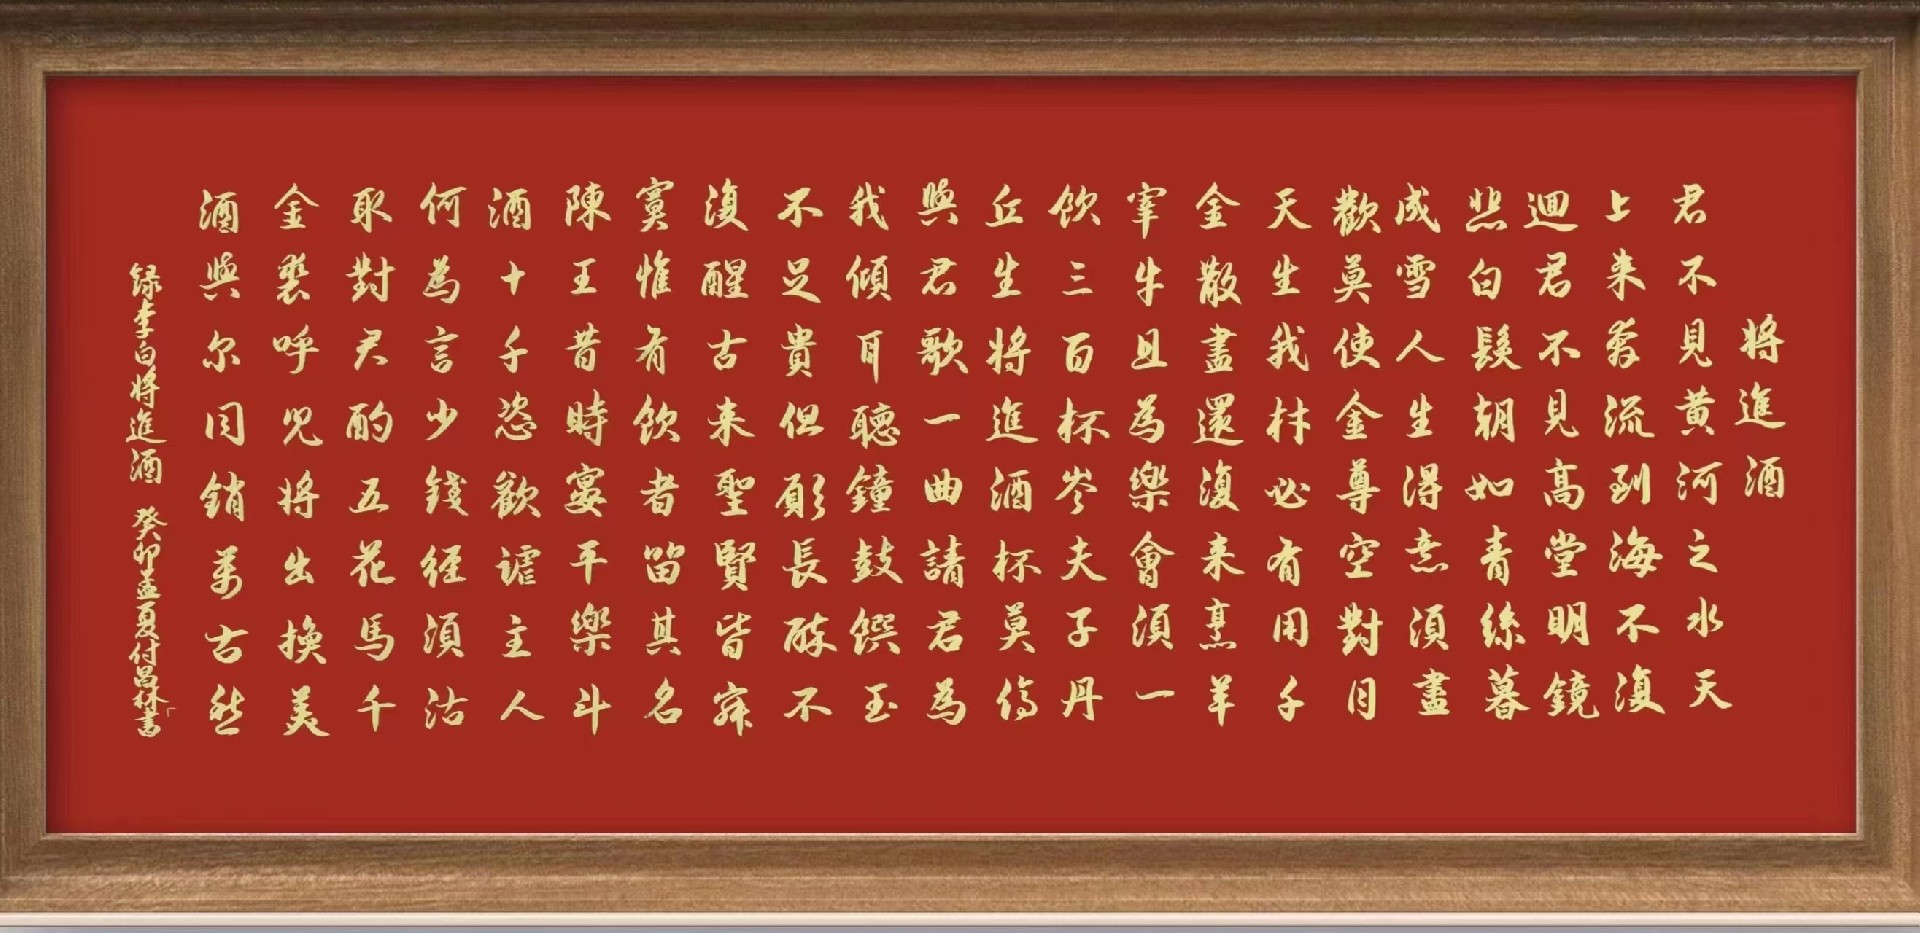 將進酒
君不見黄河之水天
上来奔流到海不復
迴君不見高堂明鏡
悲白髮朝如青絲暮
成雪人生得意須盡
歡莫使金尊空對月
天生我材必有用千
金散盡還復来烹羊
宰牛且為樂會須一
飲三百杯岑夫子丹
丘生將進酒杯莫停
與君歌一曲請君為
我傾耳聽鐘鼓饌玉
不足貴但願長醉不
復醒古来聖賢皆寂
寞惟有飲者留其名
陳王昔時宴平樂斗
酒十千恣歡謔主人
何為言少錢徑須沽
取對君酌五花馬千
金裘呼兒將出換美
酒與尔同銷萬古愁
録李白將進酒 癸卯孟夏付昌林書